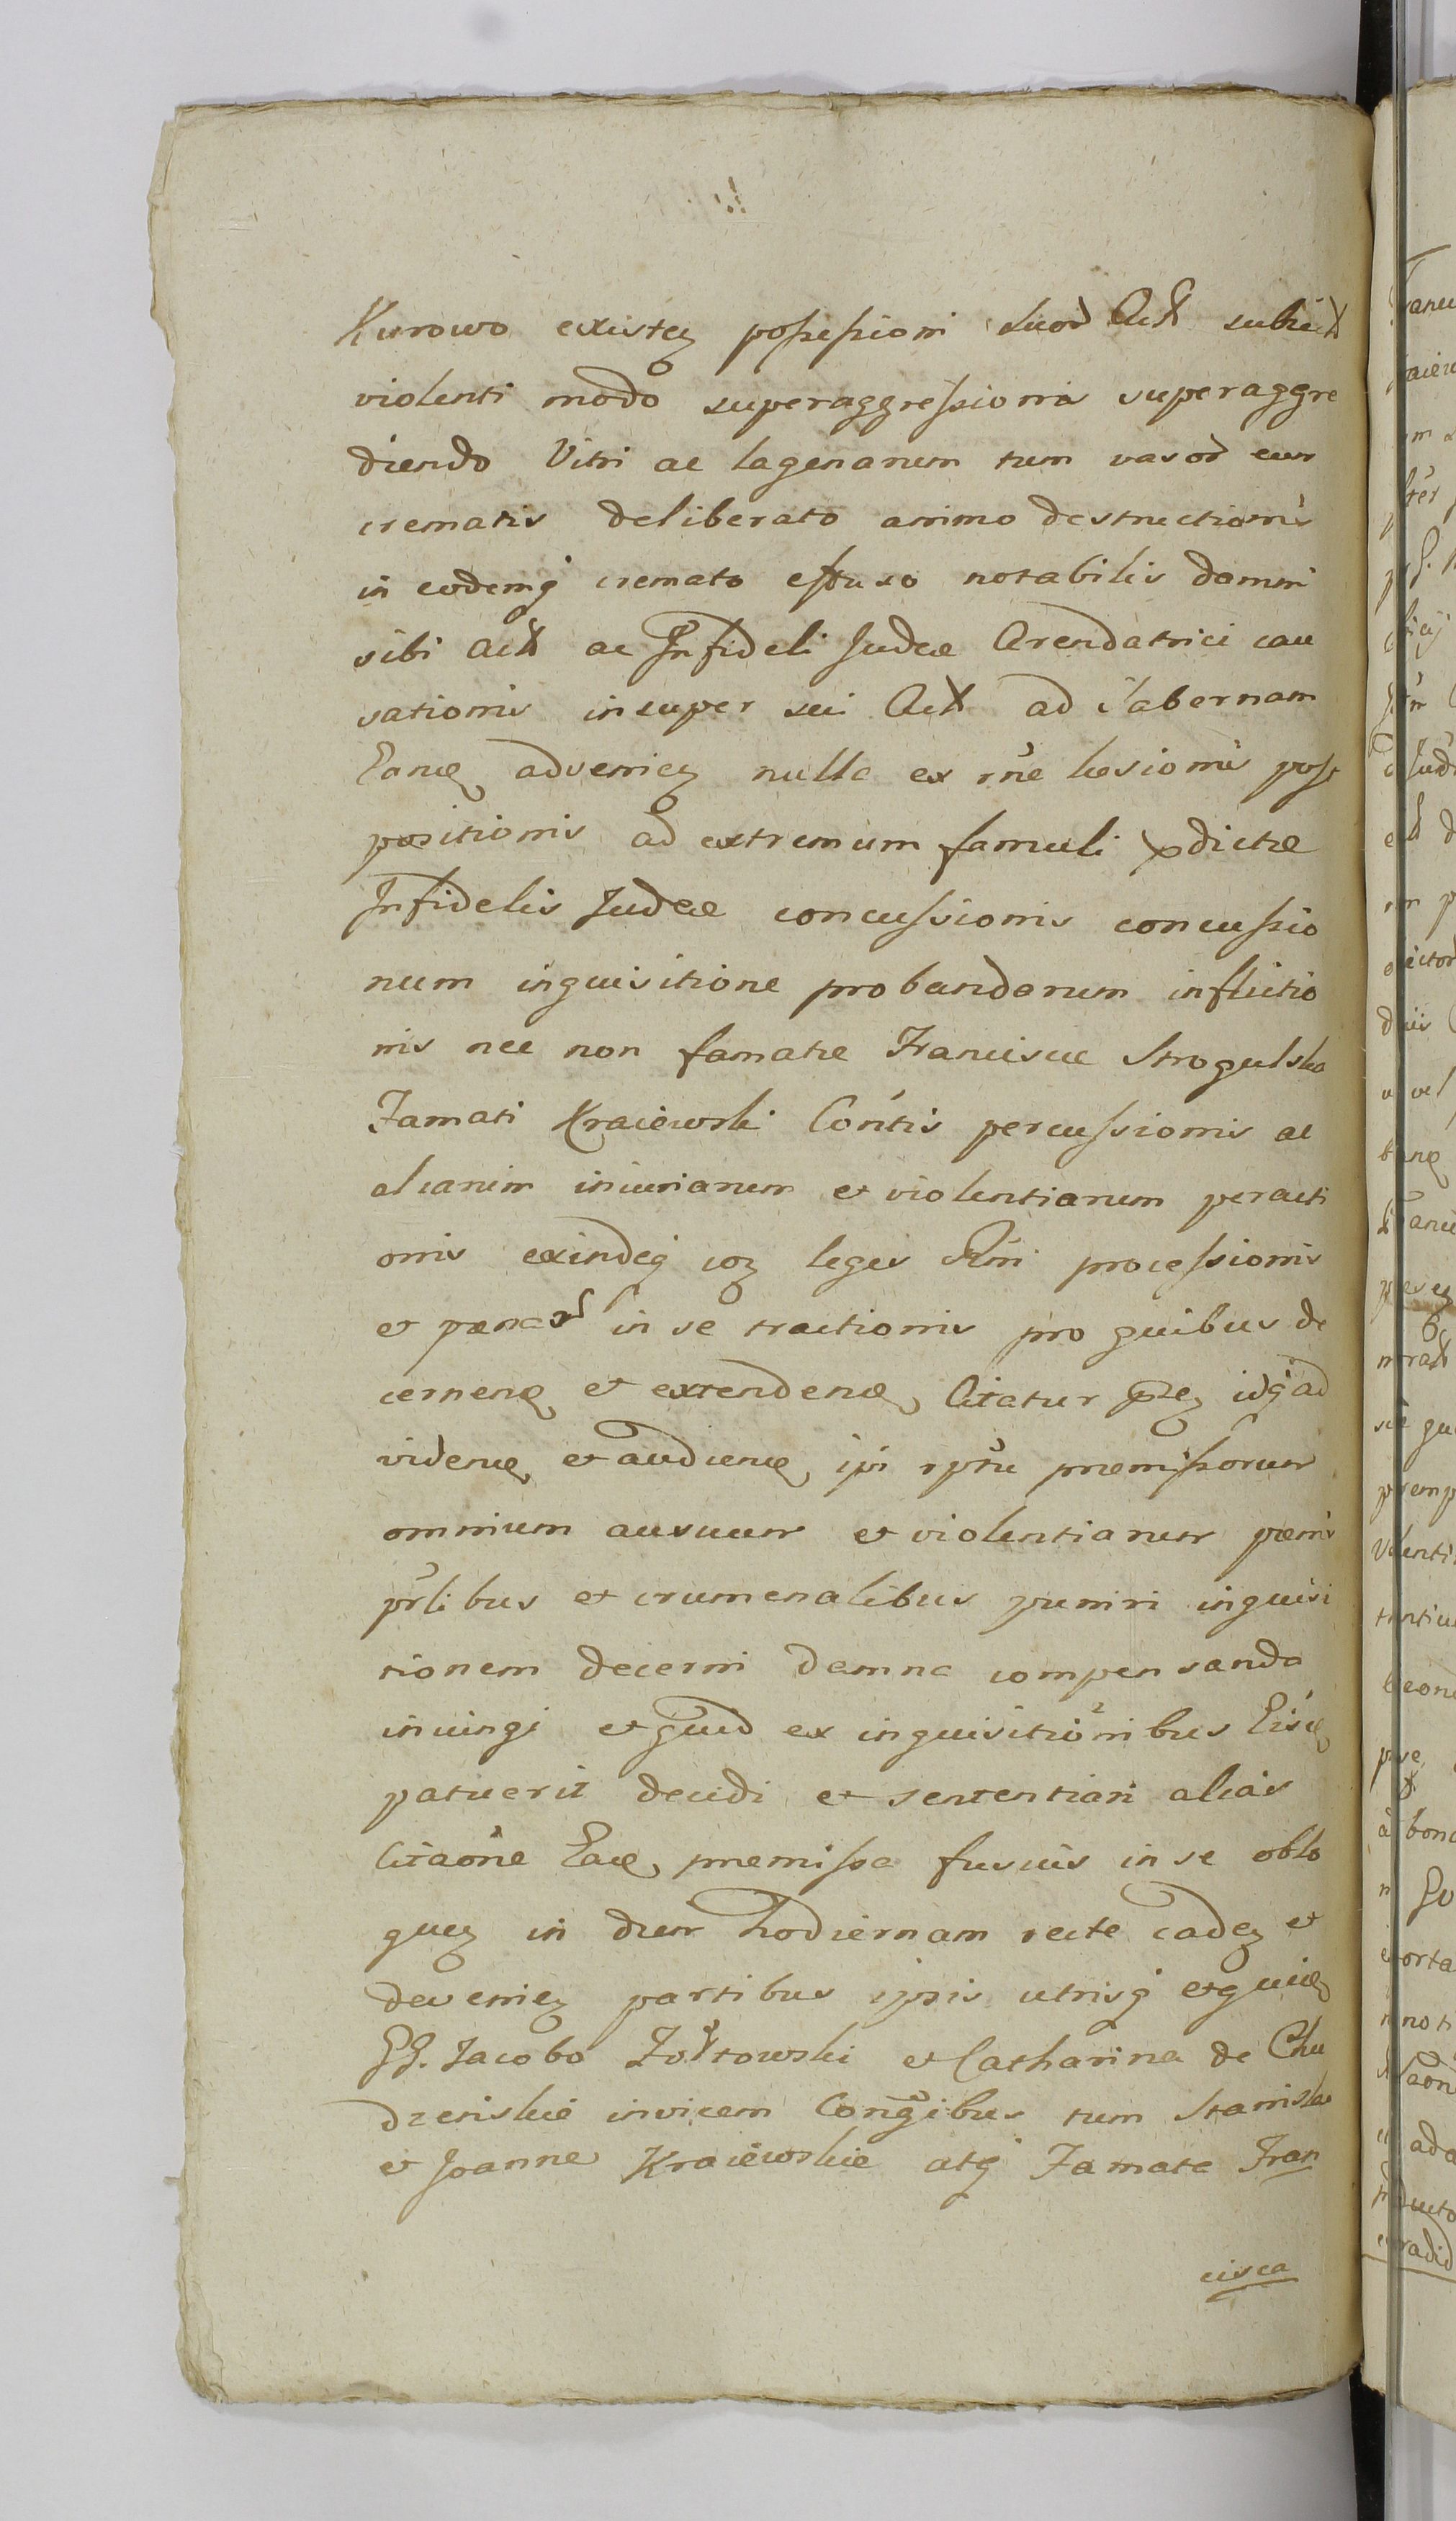 Kurowo existeȝ possessioni suor Act subiect
violenti modo superaggressionis superaggre
diendo Vitri ac lagenarum tum vasor cum
crematis deliberato animo destructionis
in eodemq cremato effuso notabilis damni
sibi Act ac Infideli Judeæ Arendatrici cau
sationis insuper sui Act ad Tabernam
Eanq advenieȝ nulla ex rñe læsionis post
positionis ad extremum famuli pdictæ
Infidelis Judeæ concussionis concussio
num inquisitione probandarum inflictio
nis nec non famatæ Franciscæ Strogulska
Famati Kraiewski Cońtis percussionis ac
aliarum iniuriarum et violentiarum peracti
onis exindeq coȝ leges Rñi processionis
et pænar in se tractionis pro quibus de
cernenq et extendenq Citatur pñeȝ idq ad
videnq et audienq ipi rptu præmissorum
omnium ausuum et violentiarum pænis
pñlibus et crumenalibus puniri inquisi
tionem decerni damna compensanda
iniungi et quid ex inquisitionibus Eisq
patuerit decidi et sententiari alias
Citaõne Eaq præmissa fusius in se oblo
queȝ in diem hodiernam recte cadeȝ et
devenieȝ partibus ipsis utrisq
GG. Jacobo Żołtowski et Catharina de Chu
dzeńskie invicem Congibus tum Stanislao
et Joanne Kraiewskie atq Famata Fran
cisca